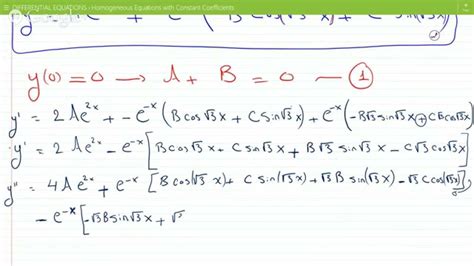 DIFFERENTIAL EQUATIONS - Homogeneous Equations with Constant Coefficients
y(0) = 0 → A + B = 0 — ①
y' = 2Ae^{2x} + -e^{-x} (B cos√3 x + C sin√3 x) + e^{-x} (-B√3 sin√3 x ⊕ C√3 cos√3 x
y' = 2Ae^{2x} - e^{-x} [B cos√3 x + C sin√3 x + B√3 sin√3 x - C√3 cos√3 x]
y'' = 4Ae^{2x} + e^{-x} [B cos(√3)x + C sin(√3)x + √3 B sin(√3)x - √3 C cos(√3)x]
- e^{-x} [-√3 B sin√3 x + √3